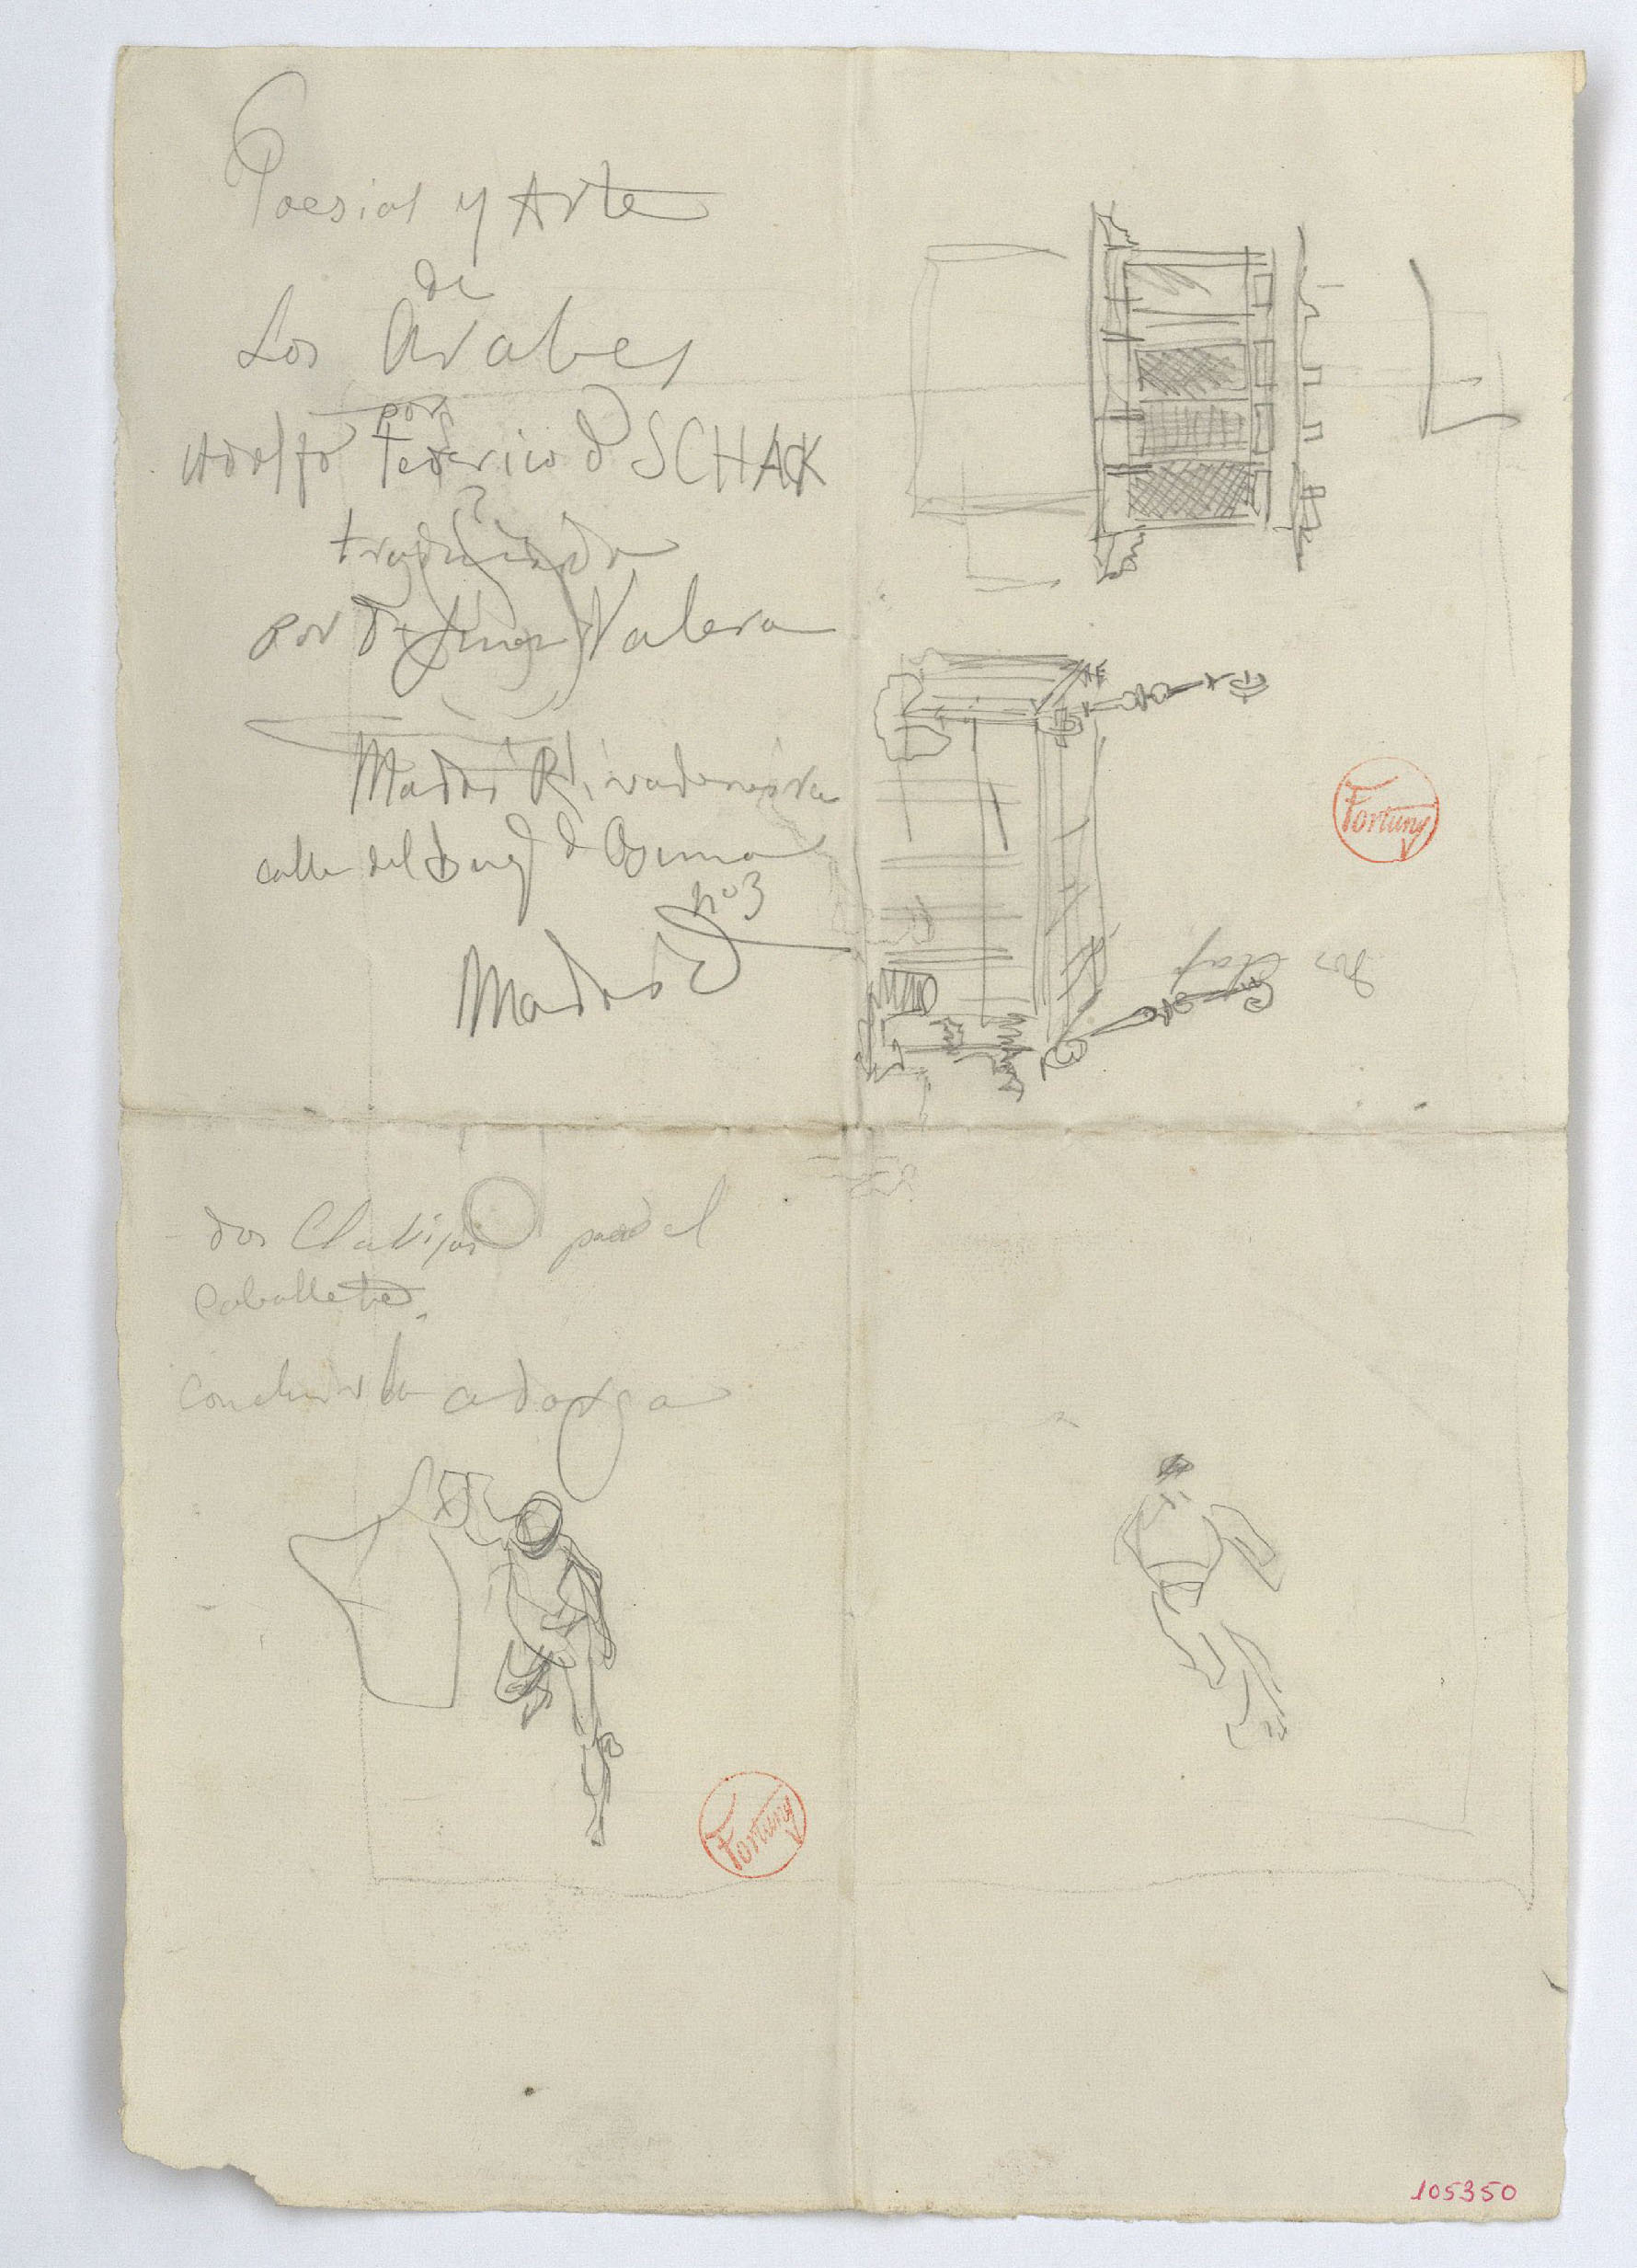 Poesias y Arte
de
Los Arabes
por
Adolfo Federico d SCHAK
traducida
por D. Juan Valera
Madrid Rivadeneira
calle del Duq de Osuna
nº 3
Madrid
Fortuny
dos Clabijas para el
Caballete.
Concluir la adarga
Fortuny
105350